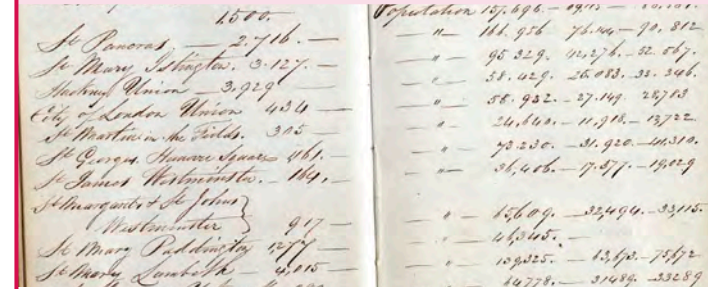 1500.
St Pancras — 2.716. —
St Mary Islington. 3.127. —
Hackney Union — 3.929 —
City of London Union 434 —
St Martin in the Fields. 305 —
St Georges Hanover Square 461. —
St James Westminster. — 164. —
St Margarets & St Johns }
Westminster } 917 —
St Mary Paddington 1277 —
St Mary Lambeth — 4,015 —
Population 157.696. —
— " — 166.956 76.144 — 90.812
— " — 95.329. 42,276. — 53.067.
— " — 58.429. 25.083. — 33.346.
— " — 55.932. — 27.149. 28,783
— " — 24.640. — 11,918. — 12,722.
— " — 73.230. — 31.920. — 41,310.
— " — 36,406. — 17.377. — 19,029
— " — 65,609. — 32,494. — 33,115.
— " — 46,345. —
— " — 139,325. — 63,673. — 75,672
— " — 64778. — 31489. — 33289